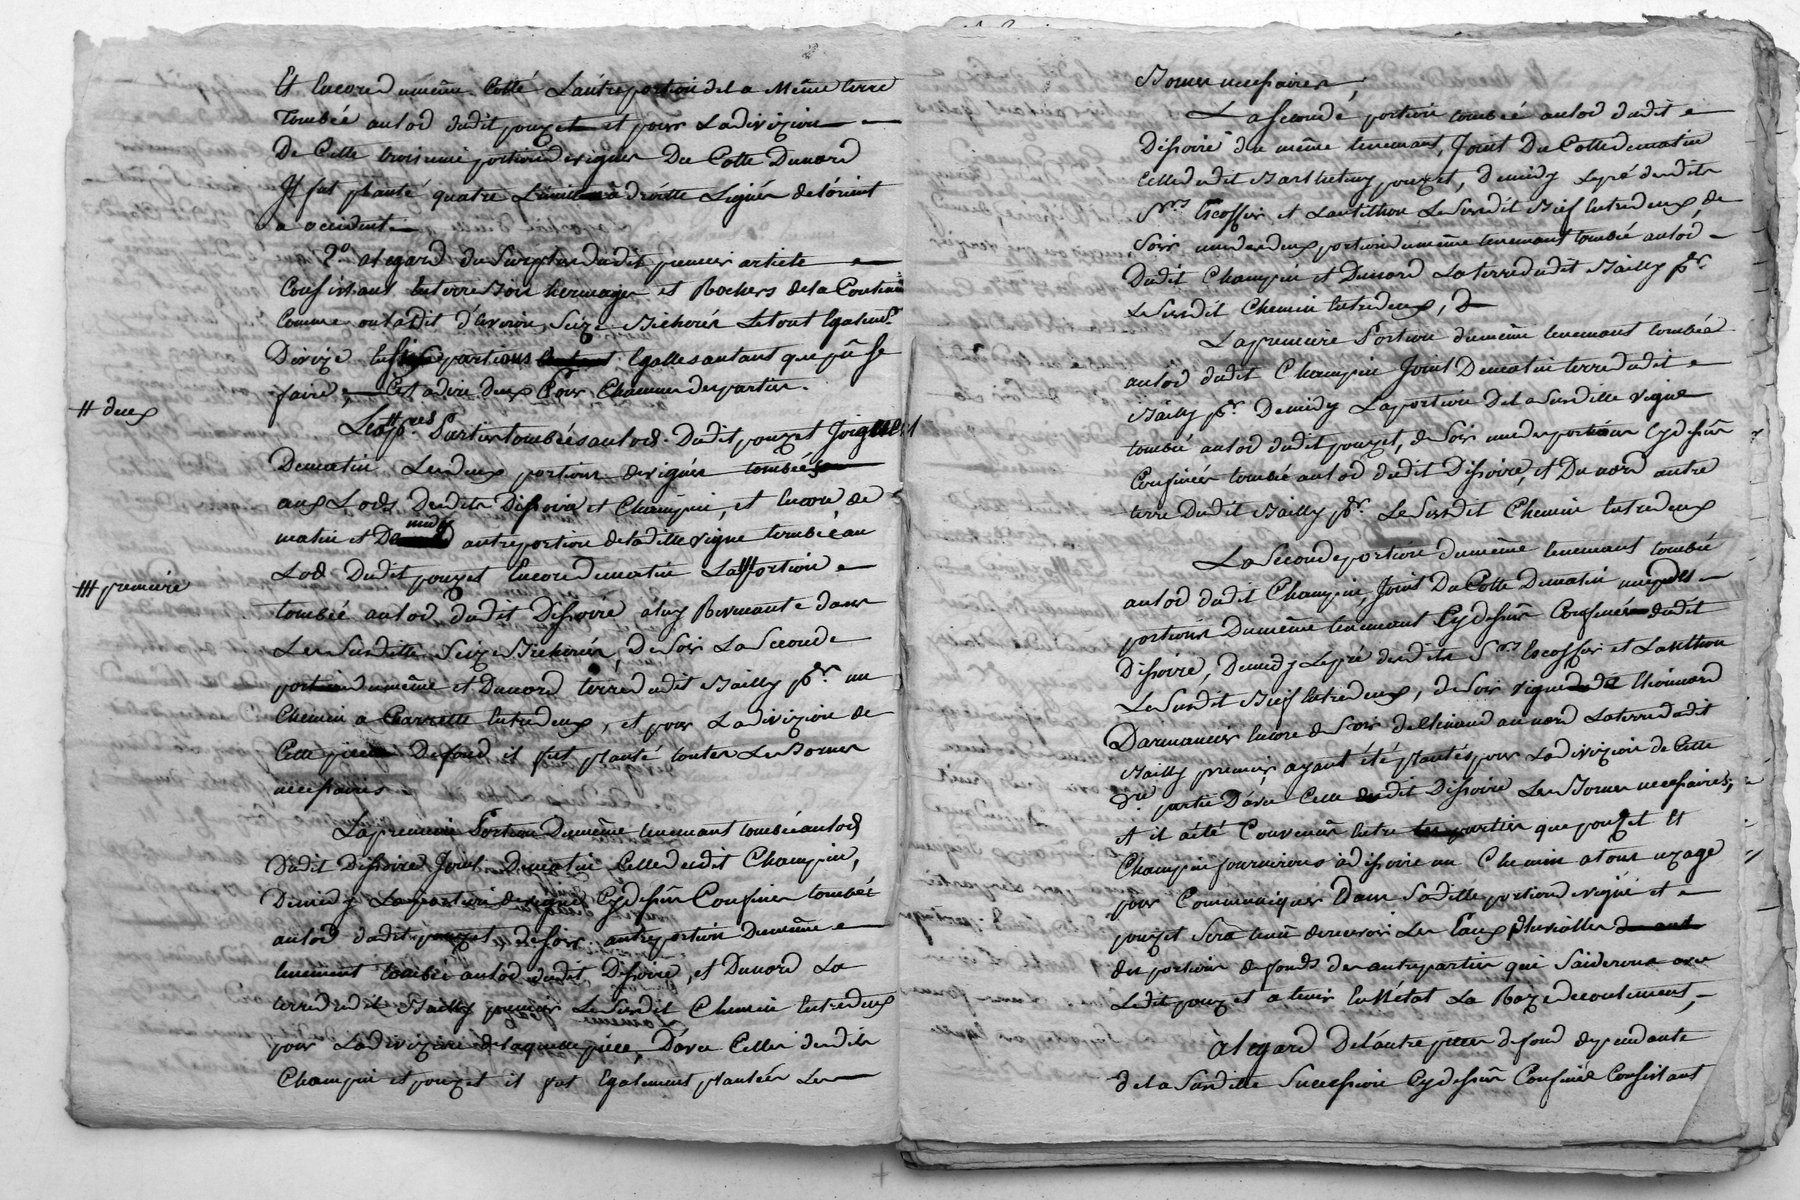 Et Encore du même Cotté L'autre portion de la Même terre
Tombée au lod dudit pouzet et pour La divizion
De Cette troisieme portion de vignes Du Cotte Du nord
Il fut planté quatre Limites a droitte Ligne de l'orient
a occident
2° a legard du Surplus dudit premier article
Consistant En terre Bois hermages et Rochers de la Contenue
Comme on la dit d'Environ Seize Bicherés Le tout Egalemt
Divizé En Six portions Egalles autant que pû Se
faire, C'est a dire deux Pour Chacune des parties.
# deux
Les # pres Parties tombées au lod Dudit pouzet Joignent
De matin Les deux portions de vignes tombées
aux Lods Desdits Dissoire et Champin, et Encore de
matin et De midy autre portion de ladite vigne tombée au
Lod Dudit pouzet Encore de matin La ## portion
## premiere
tombée au lod dudit Dissoire a luy Revenante dans
Les Susdittes Seize Bicherés, de Soir La Seconde
portion du même et Du nord terre dudit Bailly pr. un
Chemin a Charrette Entredeux, et pour La divizion de
Cette piece De fond il fut planté toutes Les Bornes
necessaires
La premiere Portion Du même tenement tombée au lod
Dudit Dissoire Joint De matin Celle dudit Champin,
De midy La portion de vigne Cydessus Confinée tombée
au lod dudit pouzet de Soir autre portion Du même
tenement tombée au lod dudit Dissoire, et Du nord La
terre dudit Bailly premier Le Susdit Chemin Entredeux
pour La divizion de laquelle piece, D'avec Celles desdits
Champin et pouzet il fut Egalement plantée Les
Bornes necessaires,
La Seconde portion tombée au lod dudit
Dissoire du même tenement, Joint Du Cotte de matin
Celle dudit Barthelemy pouzet, de midy Le pré desdits
Srs Escoffier et Lanthlion Le Susdit Bief Entredeux, de
Soir une des deux portions du même tenement tombée au lod
Dudit Champin et Du nord La terre dudit Bailly pr.
Le Susdit Chemin Entredeux,
La premiere Portion du même tenement tombée
au lod dudit Champin Joint De matin terre dudit
Bailly pr. De midy La portion de la Susditte vigne
tombée au lod dudit pouzet, de Soir une des portions Cydessus
Confinées tombée au lod dudit Dissoire, et Du nord autre
terre Dudit Bailly pr. Le Susdit Chemin Entredeux
La Seconde portion du même tenement tombée
au lod dudit Champin, Joint Du Cotte De matin une des
portions Du même tenement Cydessus Confinées dudit
Dissoire, De midy Le pré desdits Srs Escoffier et Lanthlion
Le Susdit Bief Entredeux, de Soir vigne de
Encore de Soir au nord La terre dudit
Bailly premier, ayant été plantés pour La divizion de Cette
partie D'avec Celle dudit Dissoire Les Bornes necessaires,
et il a été Convenu Entre les parties que pouzet Et
Champin fourniront a dissoire un Chemin a tout uzage
pour Communiquer Dans Sa ditte portion de vigne et
pouzet Sera tenû de recevoir Les Eaux pluvialles
des portions de fonds des autres parties qui S'aideront avec
Ledit pouzet a tenir En L'état La Raze d'ecoulement,
A l'egard De l'autre piece de fond dependante
de la Susditte Succession Cydessus Confinée Consistant